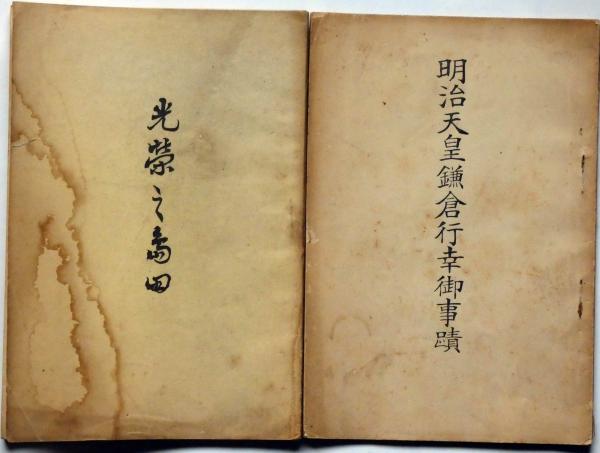 明治天皇鎌倉行幸御事蹟
光榮之島田